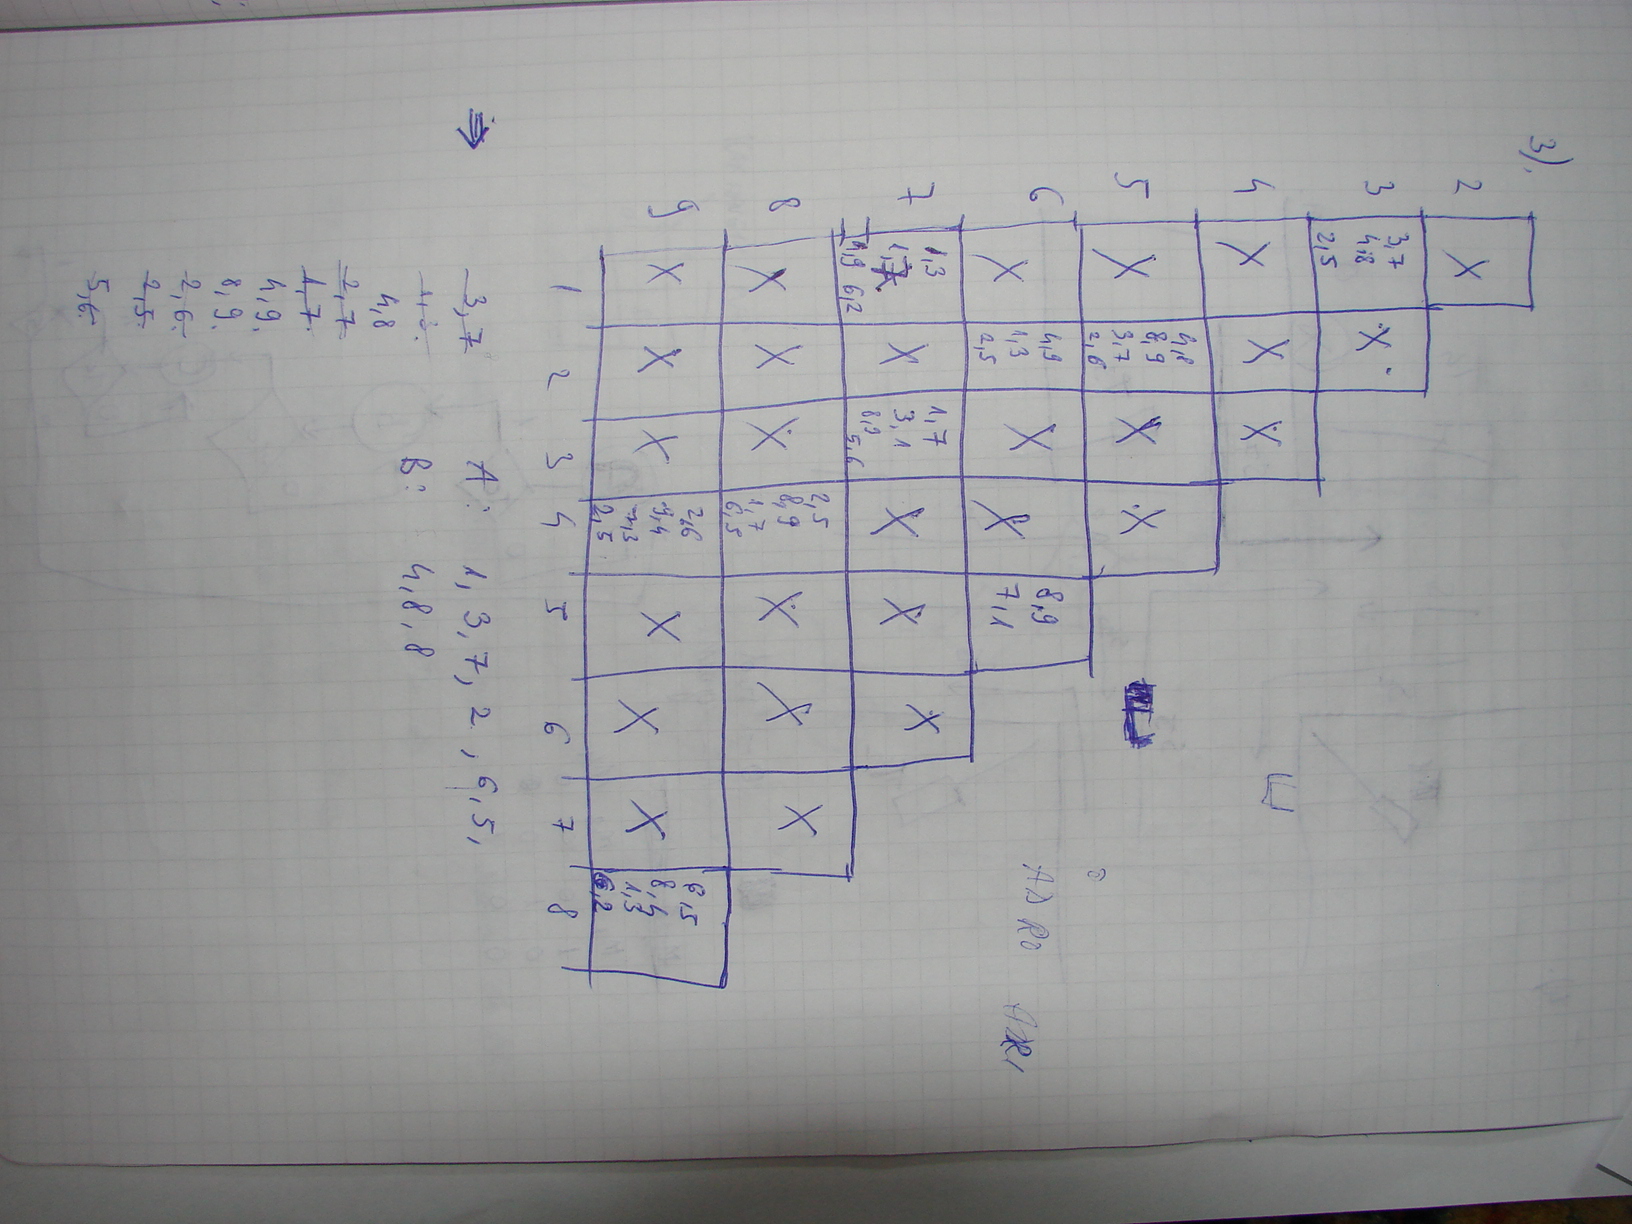 3).
2 X
3 3,7 4,8 2,5 X
4 X X X
5 X 4,8 8,9 3,7 2,6 X X
6 X 4,9 1,3 2,5 X X 8,9 7,1
7 1,3 4,9 6,2 X 1,7 3,1 8,9 5,6 X X X
8 X X X 2,5 8,9 1,7 6,5 X X X
9 X X X 2,6 9,4 7,3 2,5 X X X 6,5 8,4 1,3 6,2
1 2 3 4 5 6 7 8
3,7
4,8
2,7
1,7.
4,9.
8,9.
2,6.
2,5.
5,6.
A: 1, 3, 7, 2, 6, 5,
B: 4, 8, 8